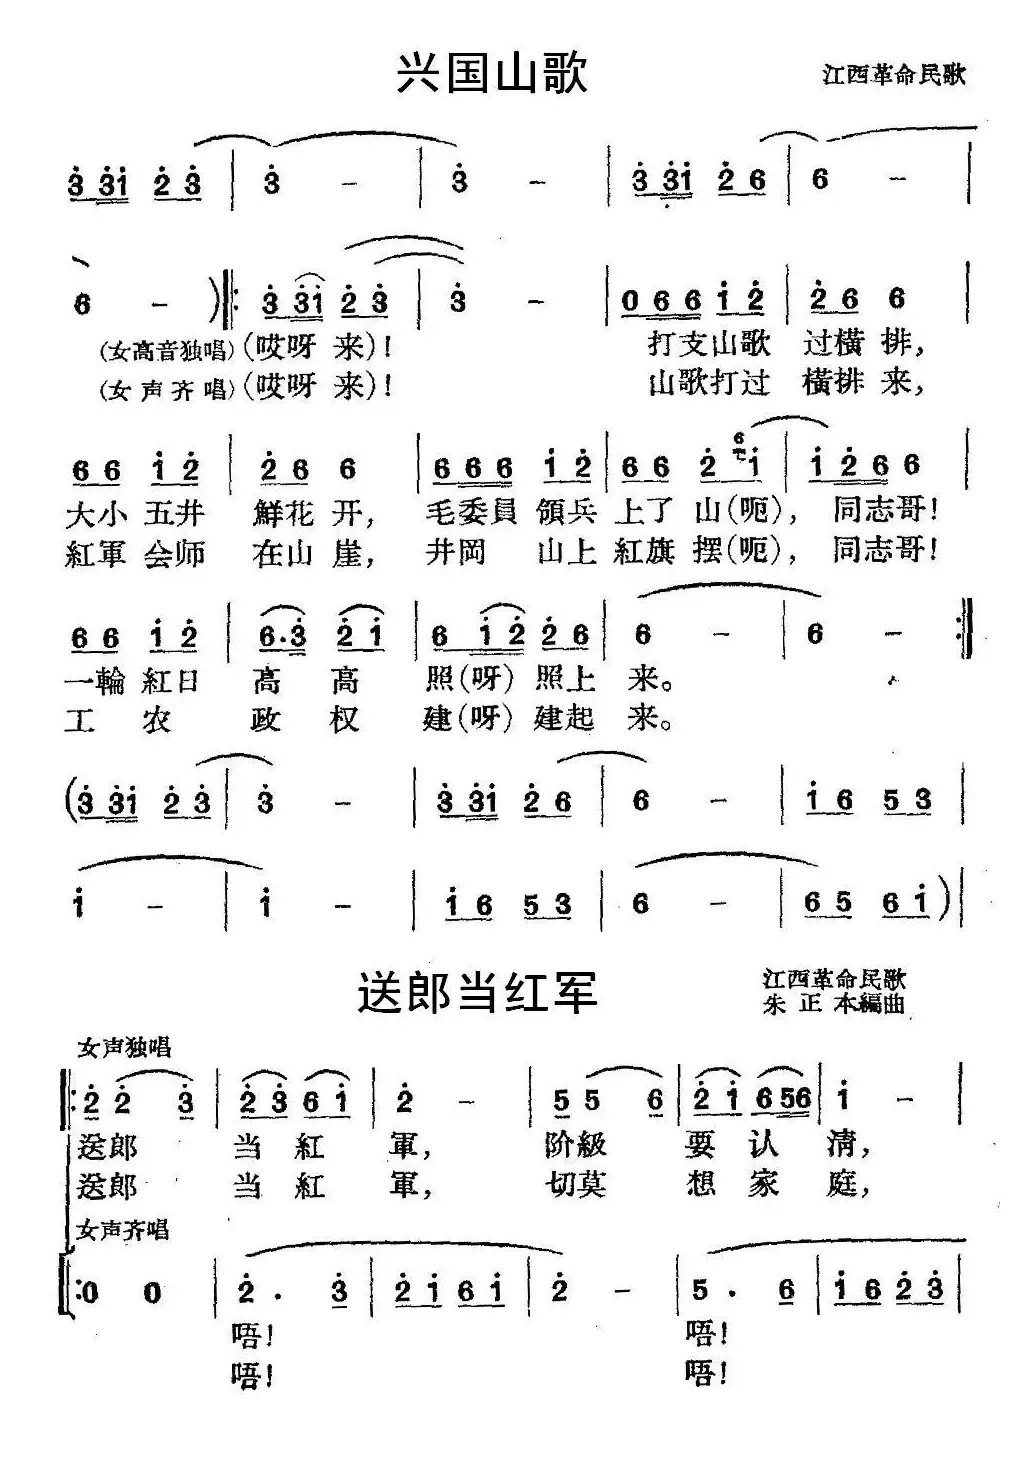 兴国山歌
江西革命民歌
3 33i 2 3 | 3 - | 3 - | 3 33i 2 6 | 6 - |
6 - ) |: 3 33i 2 3 | 3 - | 0 6 6 i 2 | 2 6 6 |
(女高音独唱)(哎呀 来)! 打支山歌 过横 排,
(女声齐唱)(哎呀 来)! 山歌打过 横排 来,
6 6 i 2 | 2 6 6 | 6 6 6 i 2 | 6 6 2 6 i | i 2 6 6 |
大小 五井 鮮花 开, 毛委員 領兵 上了 山(呃), 同志哥!
紅軍 会师 在山 崖, 井岡 山上 紅旗 摆(呃), 同志哥!
6 6 i 2 | 6 · 3 2 i | 6 i 2 2 6 | 6 - | 6 - :|
一輪 紅日 高 高 照(呀) 照上 来。
工 农 政 权 建(呀) 建起 来。
(3 33i 2 3 | 3 - | 3 33i 2 6 | 6 - | i 6 5 3 |
i - | i - | i 6 5 3 | 6 - | 6 5 6 i ) |
送郎当红军
江西革命民歌
朱正本編曲
女声独唱
|: 2 2 3 | 2 3 6 i | 2 - | 5 5 6 | 2 i 6 56 | i - |
送郎 当 紅 軍, 阶級 要 认 清,
送郎 当 紅 軍, 切莫 想 家 庭,
女声齐唱
|: 0 0 | 2 · 3 | 2 i 6 i | 2 - | 5 · 6 | i 6 2 3 |
唔! 唔!
唔! 唔!